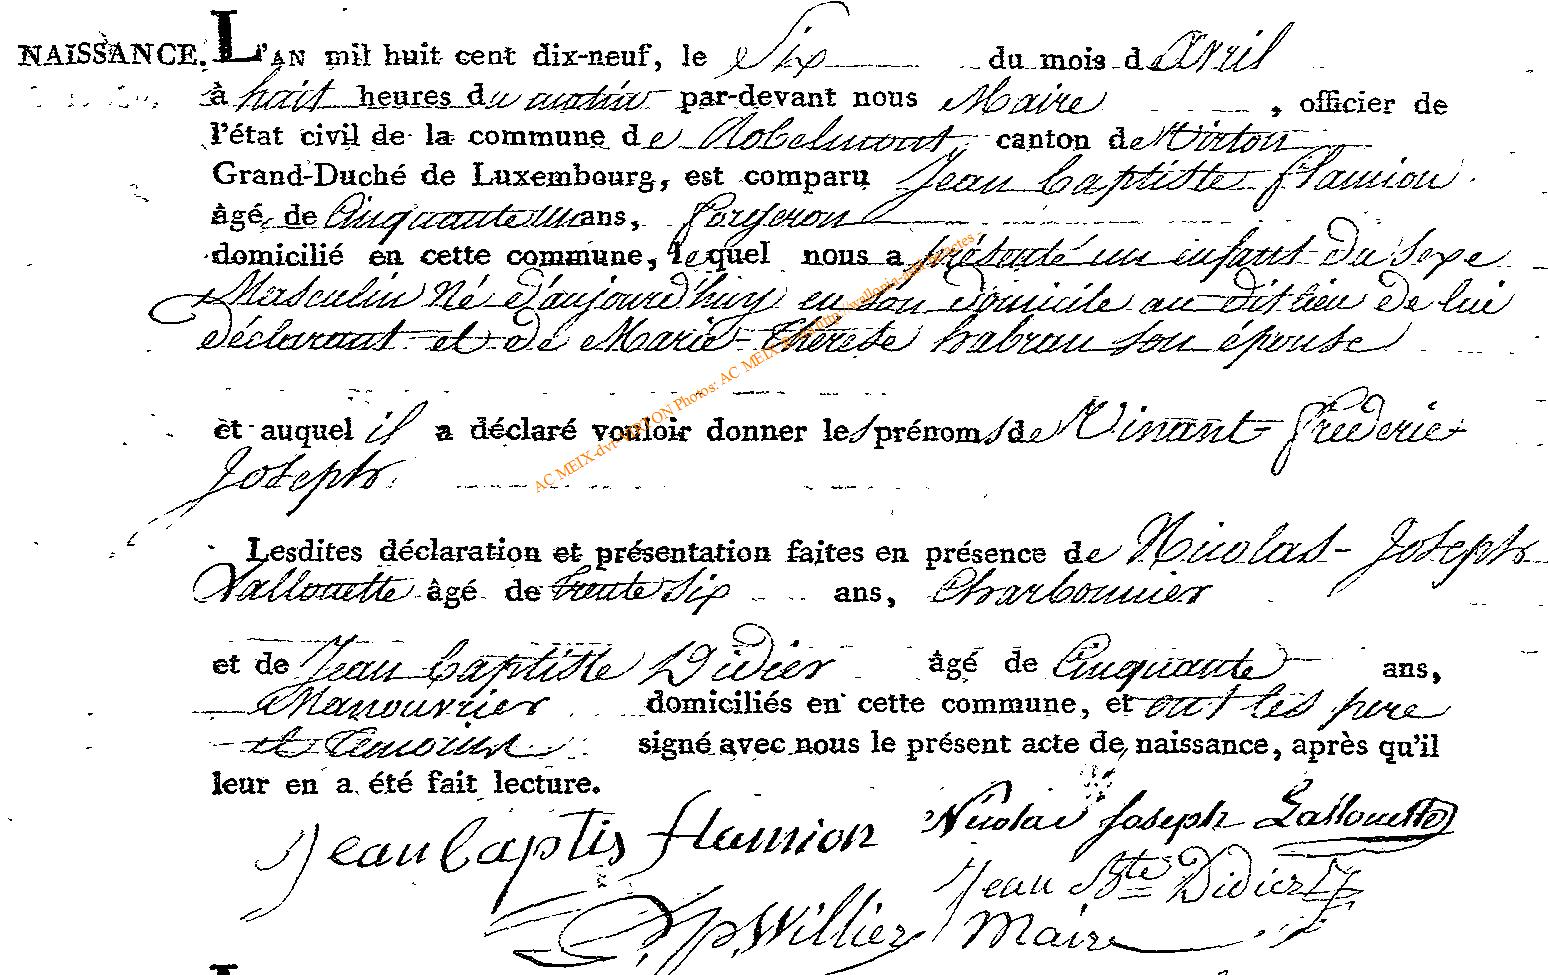 NAISSANCE. L'AN mil huit cent dix-neuf, le Six du mois d'avril
à huit heures du matin par-devant nous Maire , officier de
l'état civil de la commune de Robelmont canton de Virton
Grand-Duché de Luxembourg, est comparu Jean baptiste flamion
âgé de Cinquante un ans, forgeron
domicilié en cette commune, lequel nous a présenté un enfant du Sexe
Masculin Né d'aujourd'huy en son domicile au dit lieu de lui
déclarant et de Marie Therese habran son épouse
et auquel il a déclaré vouloir donner les prénoms de Vinant frederic
Joseph
Lesdites déclaration et présentation faites en présence de Nicolas-Joseph
Lallouette âgé de trente Six ans, Charbonnier
et de Jean baptiste Didier âgé de Cinquante ans,
Manouvrier domiciliés en cette commune, et ont les pere
et temoins signé avec nous le présent acte de naissance, après qu'il
leur en a été fait lecture.
Jean baptis flamion Nicolas Joseph Lallouette
Jean Bte Didier
Willier Maire
AC MEIX-dvt-VIRTON Photos: AC MEIX